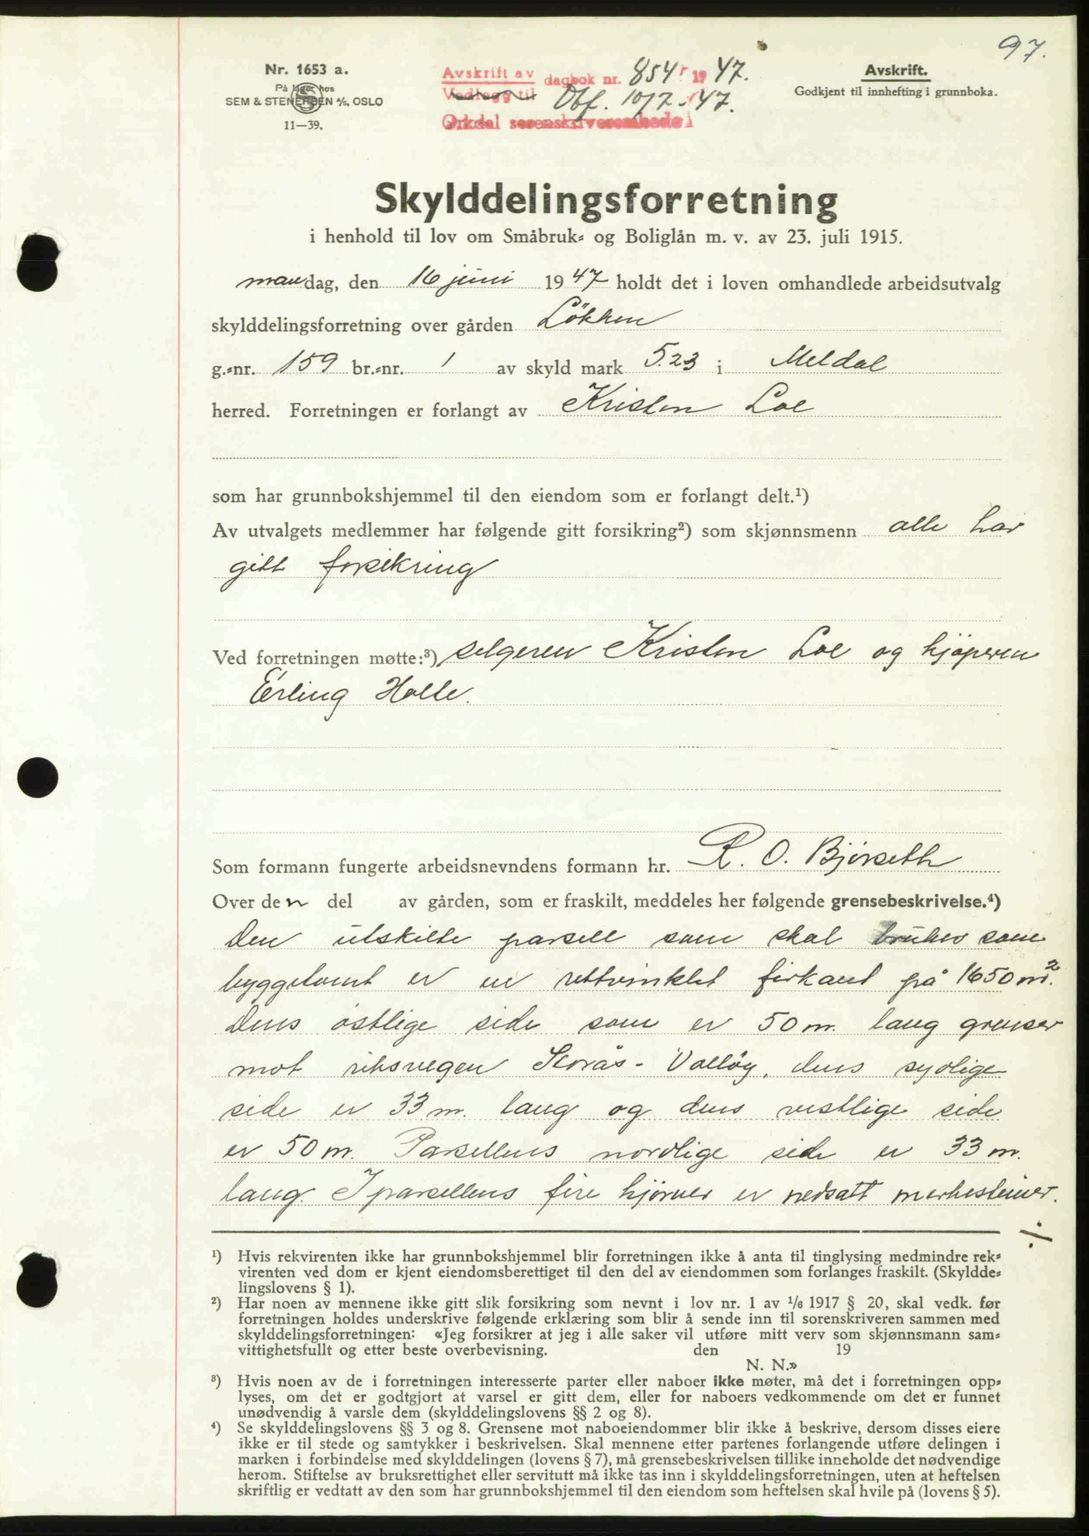 97.
Nr. 1653 a.
På lager hos
SEM & STENERSEN A/S, OSLO
11—39.
Avskrift av dagbok nr. 854 1947.
Vedlegg til Obf. 10/7-47.
Orkdal sorenskriverembede
Avskrift.
Godkjent til innhefting i grunnboka.
Skylddelingsforretning
i henhold til lov om Småbruk= og Boliglån m. v. av 23. juli 1915.
mandag, den 16 juni 1947 holdt det i loven omhandlede arbeidsutvalg
skylddelingsforretning over gården Løkken
g.=nr. 159 br.=nr. 1 av skyld mark 5.23 i Meldal
herred. Forretningen er forlangt av Kristen Loe
som har grunnbokshjemmel til den eiendom som er forlangt delt.¹)
Av utvalgets medlemmer har følgende gitt forsikring²) som skjønnsmenn alle har
gitt forsikring
Ved forretningen møtte:³) selgeren Kristen Loe og kjøperen
Erling Holte.
Som formann fungerte arbeidsnevndens formann hr. R. O. Bjørseth
Over den del av gården, som er fraskilt, meddeles her følgende grensebeskrivelse.⁴)
Den utskilte parsell som skal brukes som
byggetomt er en rettvinklet firkant på 1650 m².
Dens østlige side som er 50 m. lang grenser
mot riksvegen Storås - Valløy, dens sydlige
side er 33 m. lang og dens vestlige side
er 50 m. Parsellens nordlige side er 33 m.
lang. I parsellens fire hjørner er nedsatt merkesteiner.
÷
¹) Hvis rekvirenten ikke har grunnbokshjemmel blir forretningen ikke å anta til tinglysing medmindre rek=
virenten ved dom er kjent eiendomsberettiget til den del av eiendommen som forlanges fraskilt. (Skyldde=
lingslovens § 1).
²) Har noen av mennene ikke gitt slik forsikring som nevnt i lov nr. 1 av 1/6 1917 § 20, skal vedk. før
forretningen holdes underskrive følgende erklæring som blir å sende inn til sorenskriveren sammen med
skylddelingsforretningen: «Jeg forsikrer at jeg i alle saker vil utføre mitt verv som skjønnsmann sam=
vittighetsfullt og etter beste overbevisning. den 19
N. N.»
³) Hvis noen av de i forretningen interesserte parter eller naboer ikke møter, må det i forretningen opp=
lyses, om det er godtgjort at varsel er gitt dem, eller for naboers vedkommende om det er funnet
unødvendig å varsle dem (skylddelingslovens §§ 2 og 8).
⁴) Se skylddelingslovens §§ 3 og 8. Grensene mot naboeiendommer blir ikke å beskrive, dersom disses eiere
ikke er til stede og samtykker i beskrivelsen. Skal mennene etter partenes forlangende utføre delingen i
marken i forbindelse med skylddelingen (lovens § 7), må grensebeskrivelsen tillike inneholde det nødvendige
herom. Stiftelse av bruksrettighet eller servitutt må ikke tas inn i skylddelingsforretningen, uten at heftelsen
skriftlig er vedtatt av den som har grunnbokshjemmel til den eiendom som heftelsen skal hvile på (lovens § 5).